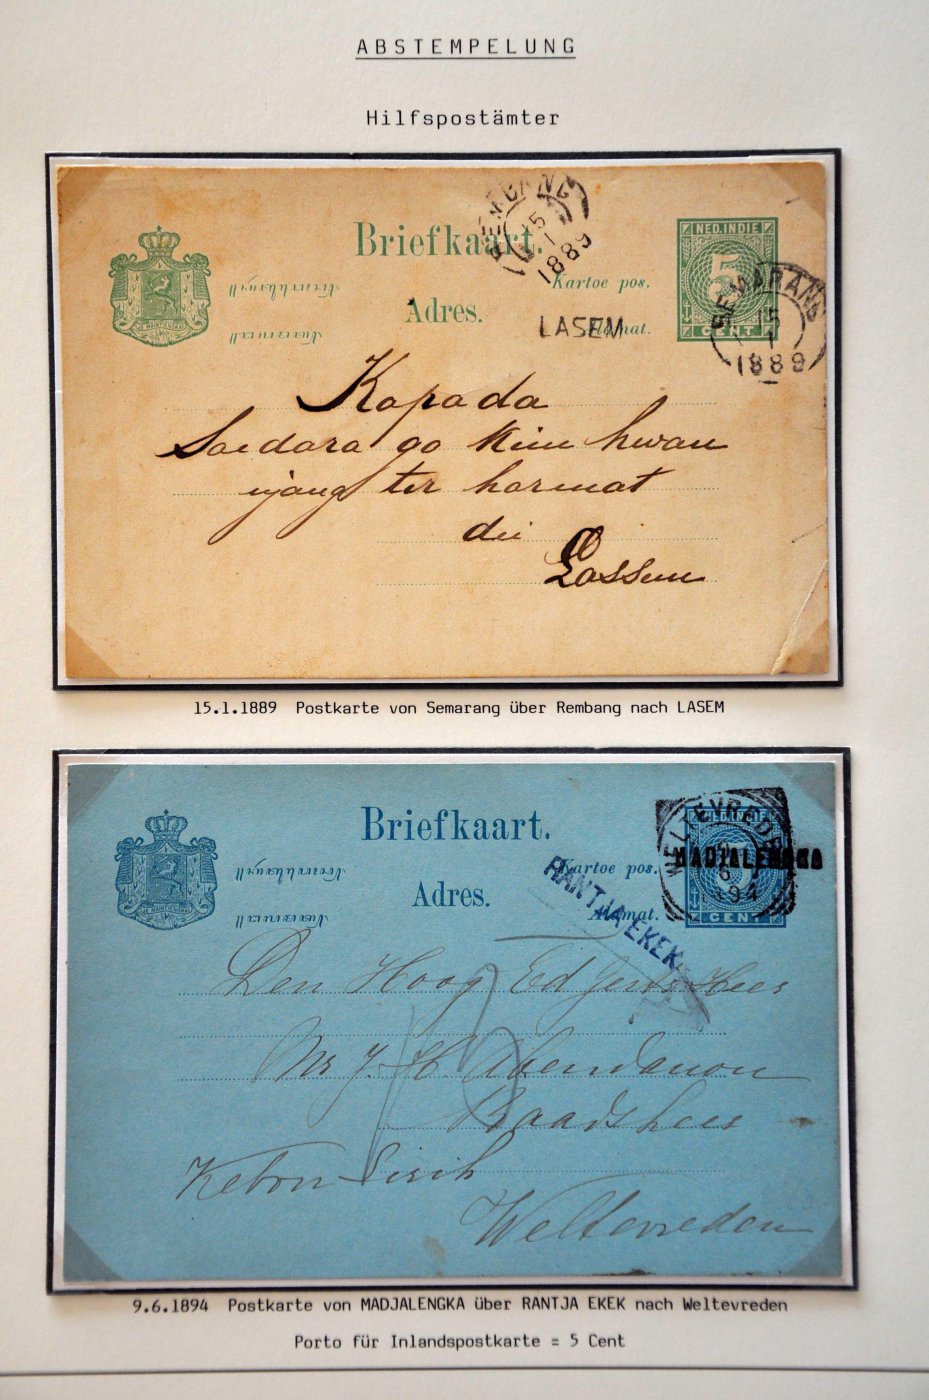 ABSTEMPELUNG
Hilfspostämter
REMBANG
15
1
1889
Briefkaart.
NED. INDIE
5
CENT
Kartoe pos.
Adres.
Alamat.
JE MAINTIENDRAI
LASEM
SEMARANG
15
1
1889
Kapada
Soedara go Kim hwan
njang ter hormat
di
Lassem
15.1.1889 Postkarte von Semarang über Rembang nach LASEM
Briefkaart.
NED. INDIE
5
CENT
Kartoe pos.
Adres.
Alamat.
JE MAINTIENDRAI
WELTEVREDEN
9
6
94
MADJALENGKA
RANTJA EKEK
Den Hoog Ed Gestr Heer
Mr J. H. Abendanon
Raadsheer
Kebon Sirih
Weltevreden
9.6.1894 Postkarte von MADJALENGKA über RANTJA EKEK nach Weltevreden
Porto für Inlandspostkarte = 5 Cent